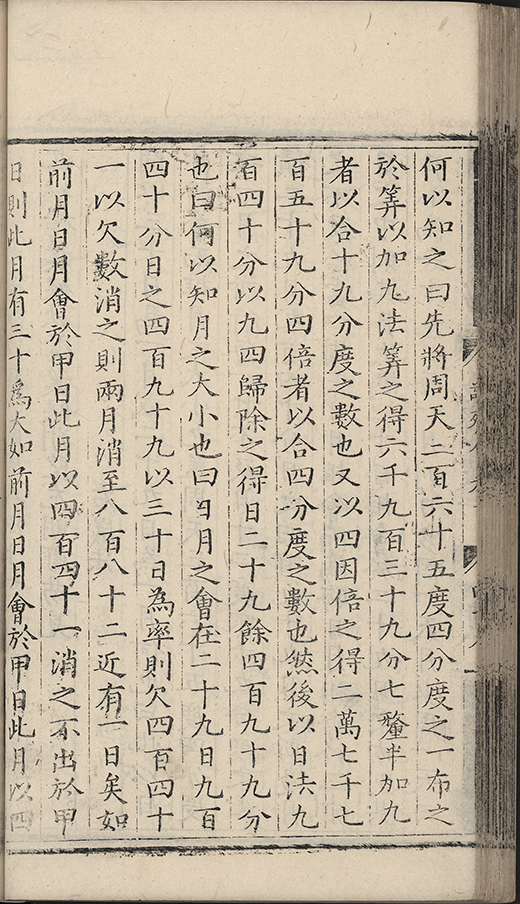 何以知之曰先將周天二百六十五度四分度之一布之
於筭以加九法筭之得六千九百三十九分七釐半加九
者以合十九分度之數也又以四因倍之得二萬七千七
百五十九分四倍者以合四分度之數也然後以日法九
百四十分以九四歸除之得日二十九餘四百九十九分
也曰何以知月之大小也曰日月之會在二十九日九百
四十分日之四百九十九以三十日為率則欠四百四十
一以欠數消之則兩月消至八百八十二近有一日矣如
前月日月會於甲日此月以四百四十一消之不出於甲
日則此月有三十爲大如前月日月會於甲日此月以四